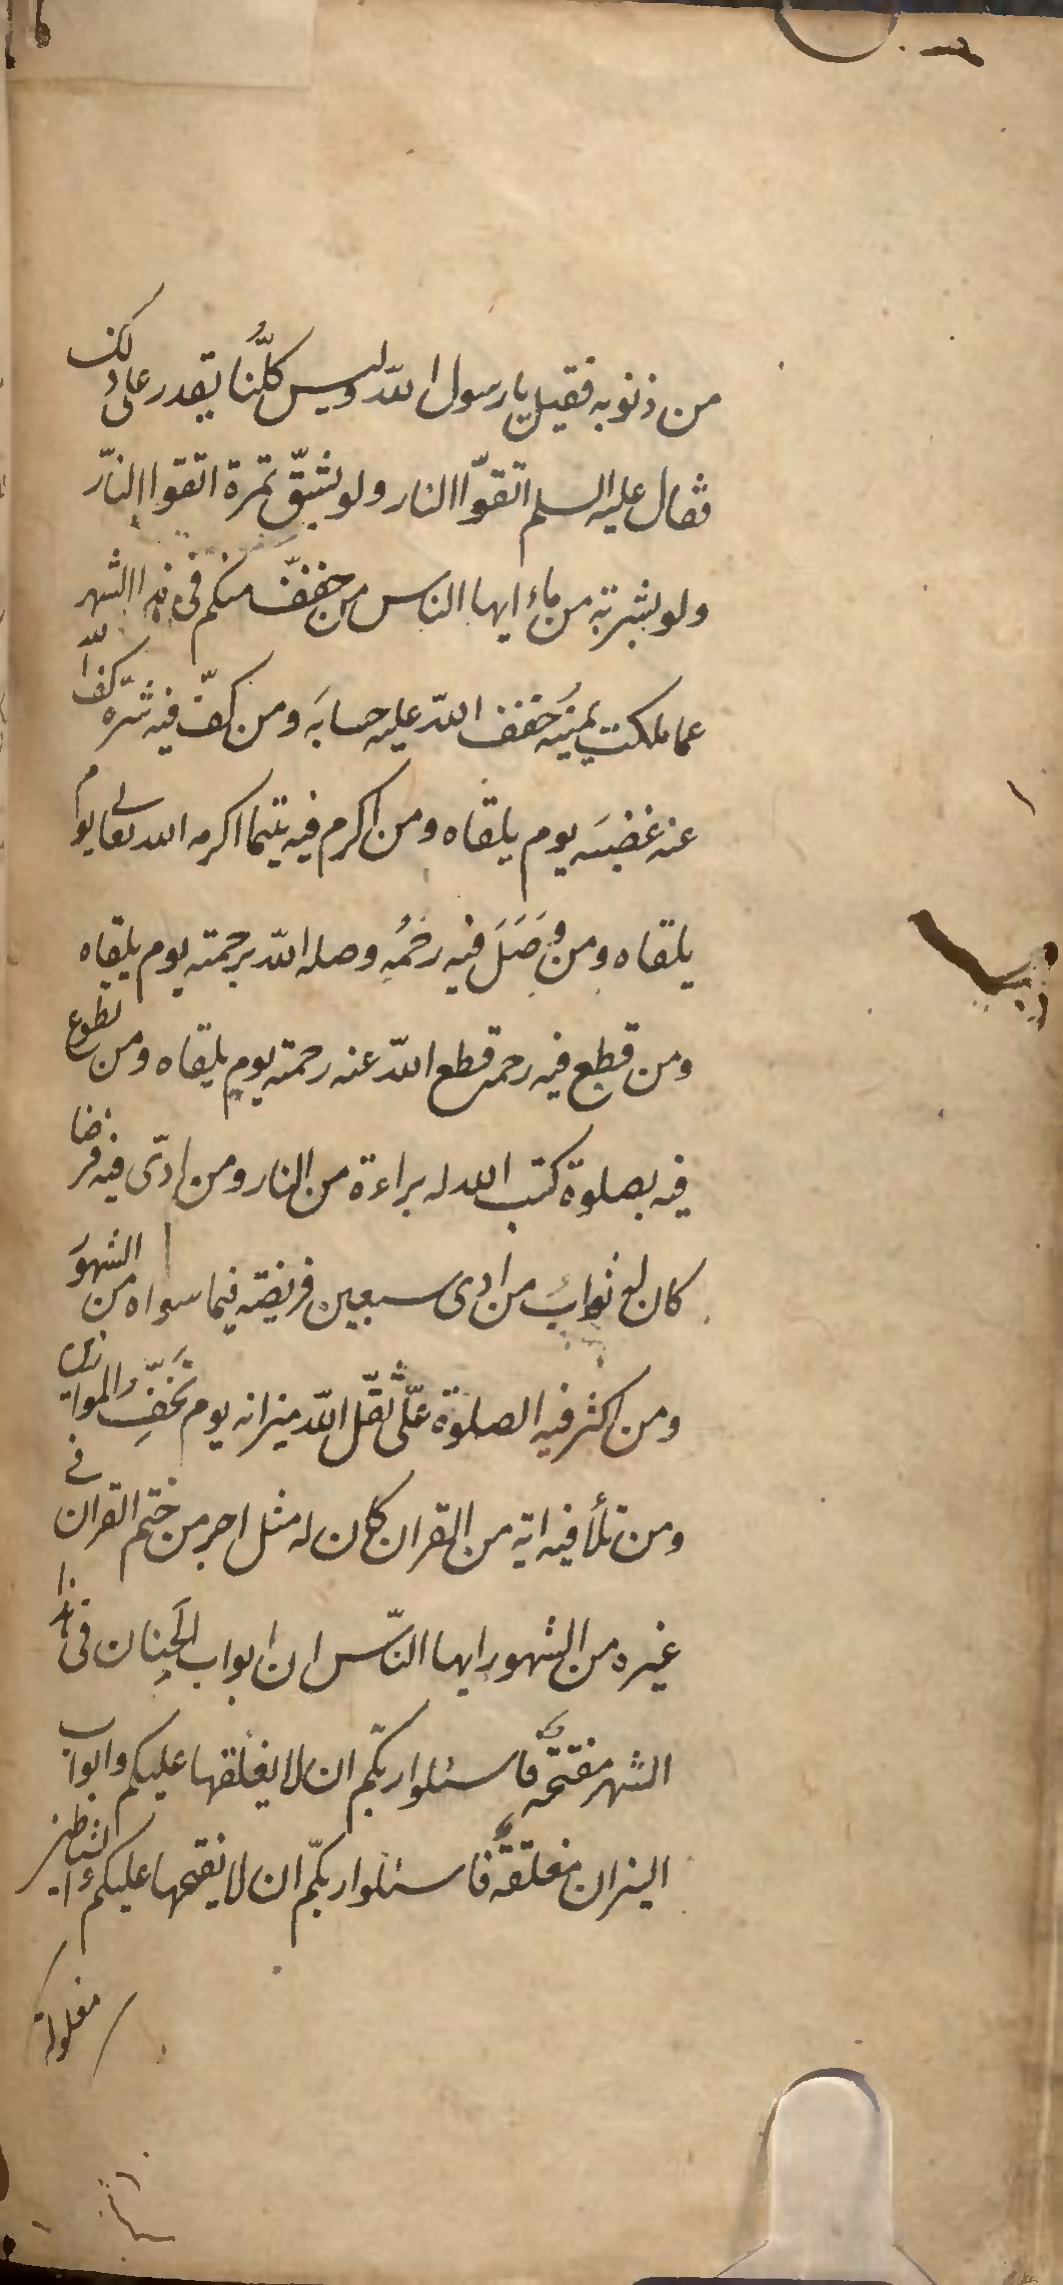 من ذنوبه فقيل يا رسول الله وليس كلّنا يقدر على ذلك
فقال عليه السلم اتقوّا النار ولو بشقّ تمرة اتقوا النّار
ولو بشربة من ماء ايها الناس من خففّ منكم فى هذا الشهر
عما ملكت يمينُه خفف اللّه عليه حسابَه ومن كفّ فيه شرّه كفّ اللّه
عنه غضبَه يوم يلقاه ومن اكرم فيه يتيما اكرمه الله تعالى يوم
يلقاه ومن وَصَلَ فيه رحمُه وصله اللّه برحمته يوم يلقاه
ومن قطع فيه رحمه قطع اللّه عنه رحمته يوم يلقاه ومن تطوع
فيه بصلوة كتب الله له براءة من النار ومن ادّى فيه فرضا
كان له ثوابُ من ادى سبعين فريضة فيما سواه من الشهور
ومن اكثر فيه الصلوة علّى ثقّل اللّه ميزانه يوم تخفّ الموازين
ومن تلأ فيه اية من القران كان له مثل اجر من ختم القران فى
غيره من الشهور ايها النّاس ان ابواب الجنان فى هذا
الشهر مفتحة فاسئلوا ربّكم ان لا يغلقها عليكم وابواب
النيران مغلقة فاسئلوا ربكّم ان لا يفتحها عليكم والشياطين
مغلولة